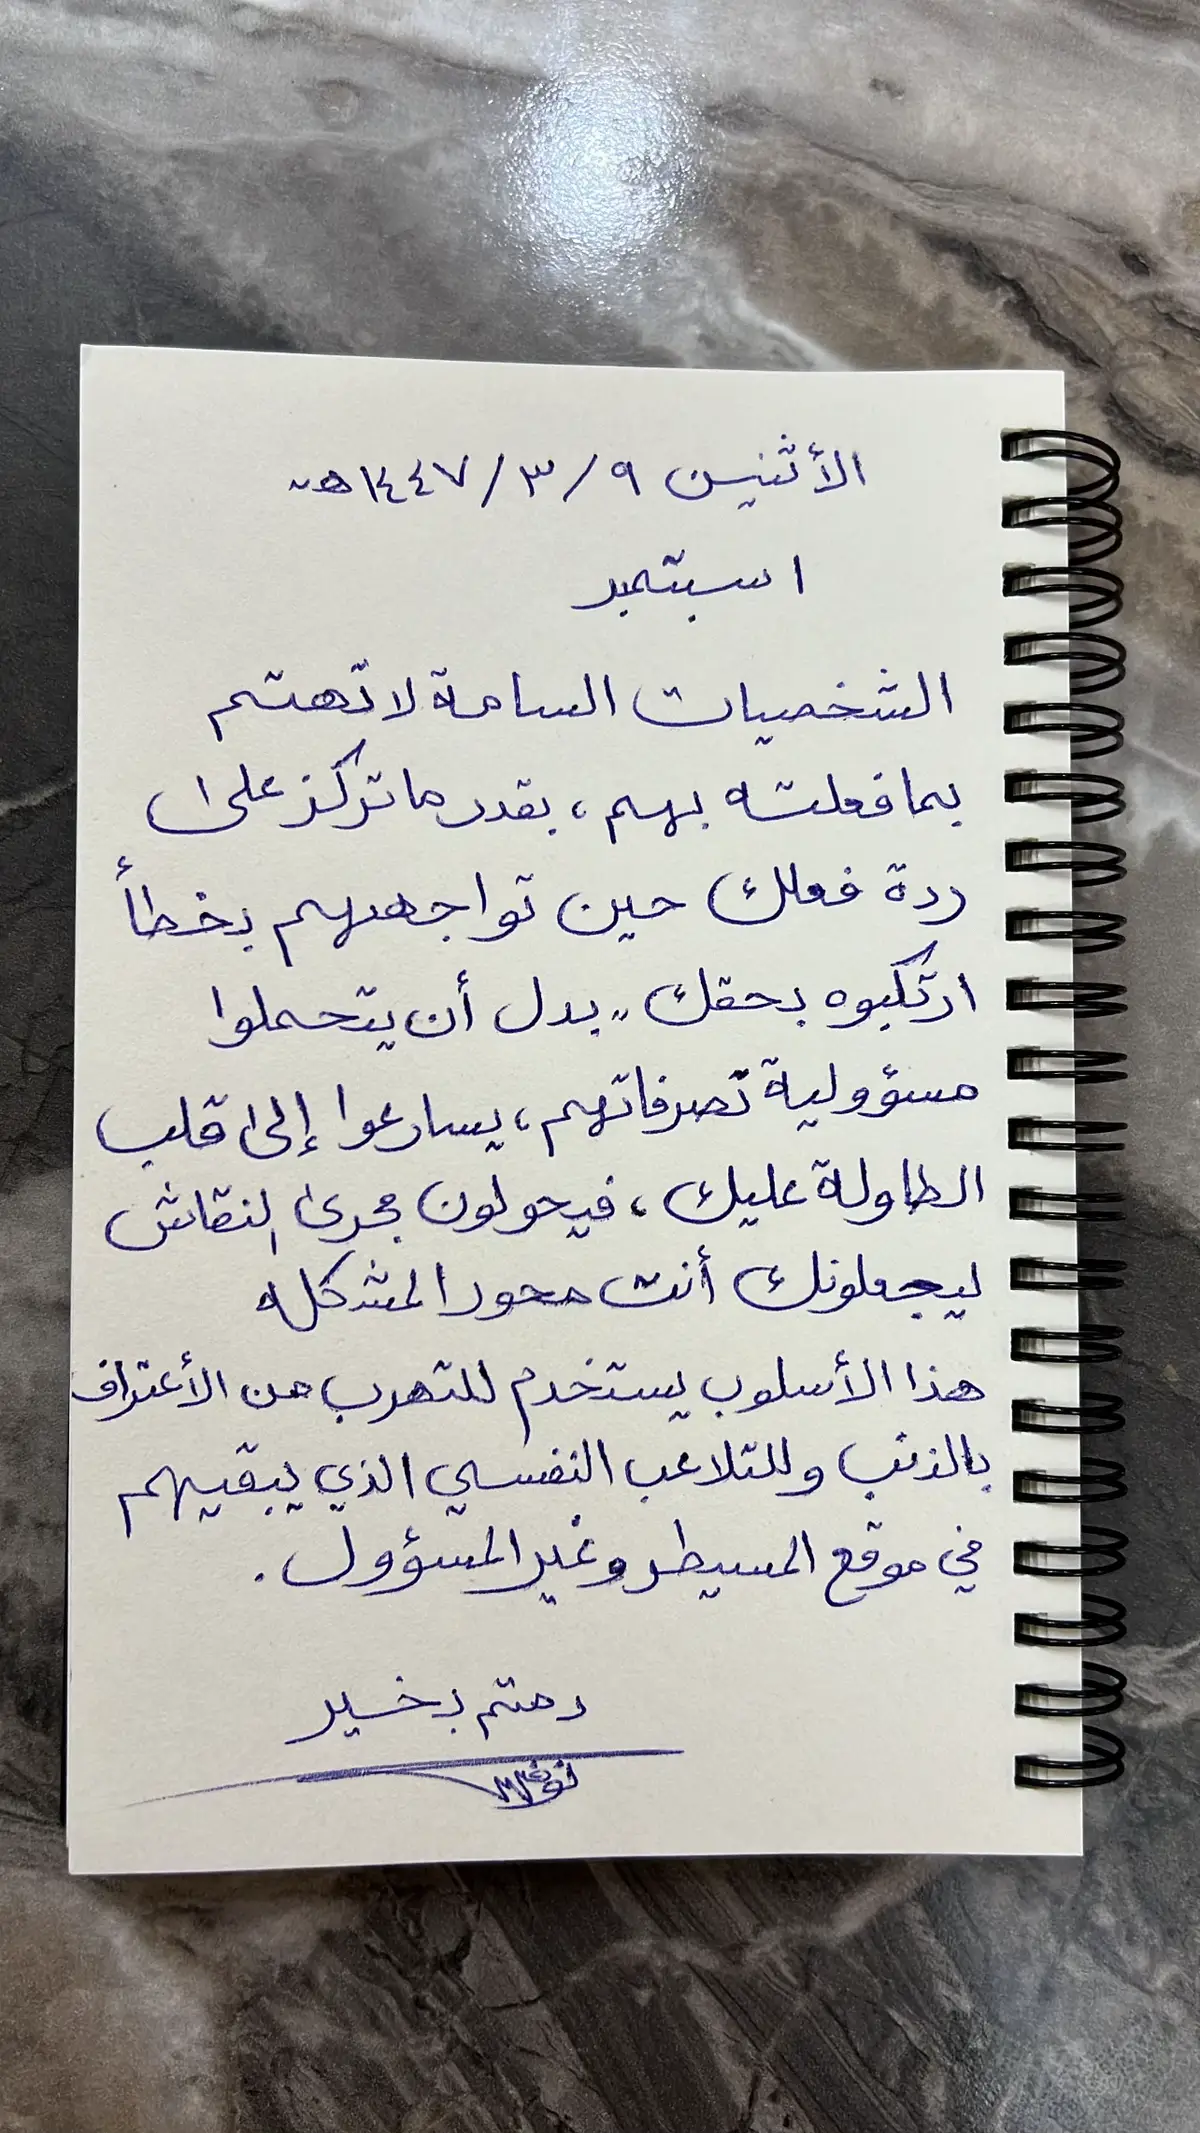 الأثنين ٩/٣/١٤٤٧هـ
١ سبتمبر
الشخصيات السامة لا تهتم
بما فعلته بهم، بقدر ما تركز على
ردة فعلك حين تواجههم بخطأ
ارتكبوه بحقك .. بدل أن يتحملوا
مسؤولية تصرفاتهم، يسارعوا إلى قلب
الطاولة عليك، فيحولون مجرى النقاش
ليجعلونك أنت محور المشكله
هذا الأسلوب يستخدم للتهرب من الأعتراف
بالذنب وللتلاعب النفسي الذي يبقيهم
في موقع المسيطر وغير المسؤول .
دمتم بخير